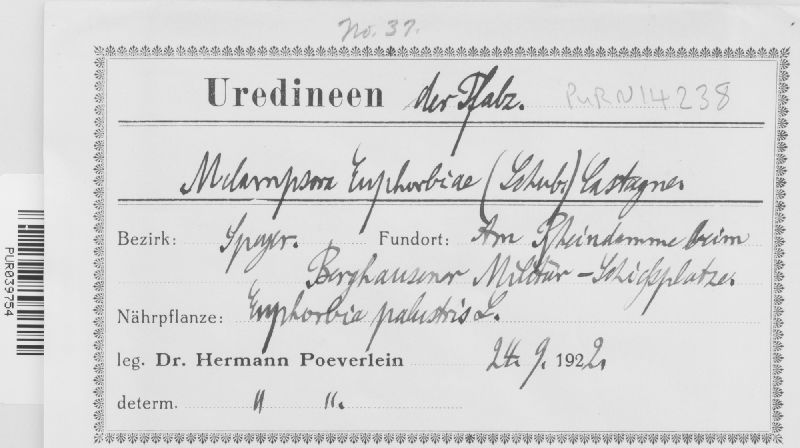 No. 37.
Uredineen der Pfalz. PUR N14238
Melampsora Euphorbiae (Schub.) Castagne.
Bezirk: Speyer. Fundort: Am Rheindamme beim
Berghausener Militär-Schießplatze.
Nährpflanze: Euphorbia palustris L.
leg. Dr. Hermann Poeverlein 24. 9. 1922.
determ. " ".
PUR039754